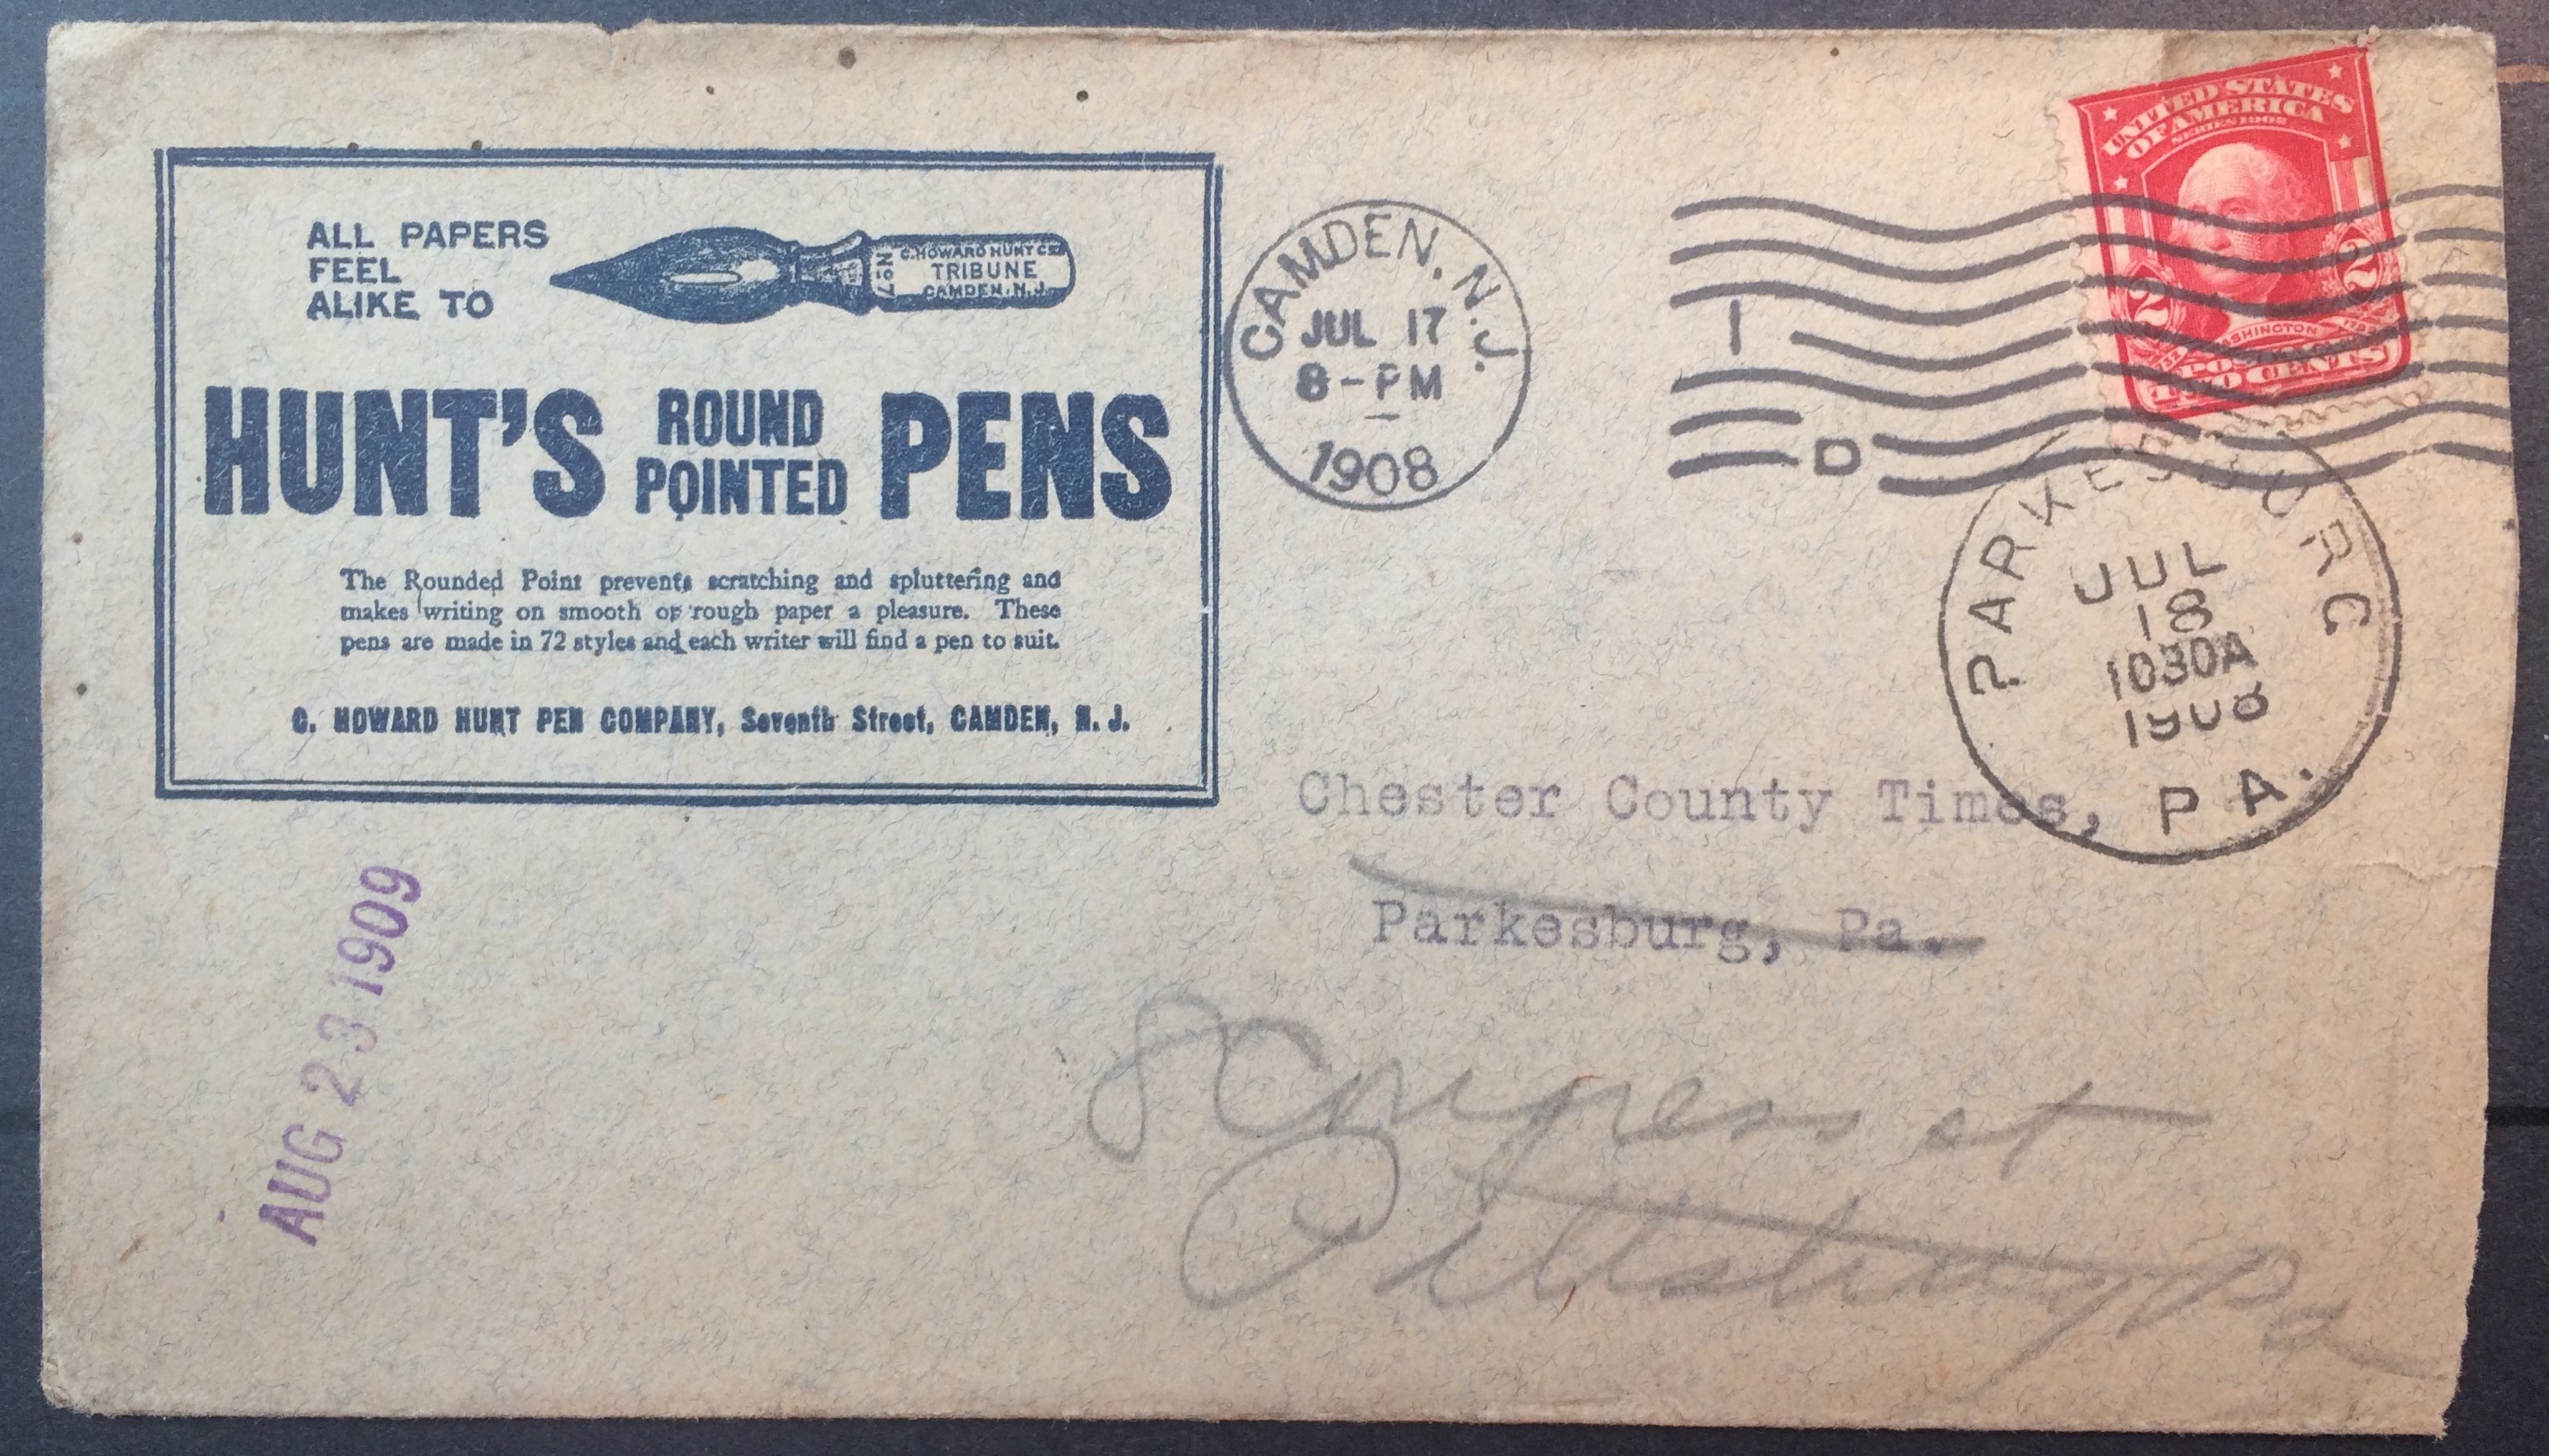 ALL PAPERS
FEEL
ALIKE TO
No 7
C. HOWARD HUNT CO
TRIBUNE
CAMDEN, N.J.
HUNT'S ROUND POINTED PENS
The Rounded Point prevents scratching and spluttering and
makes writing on smooth or rough paper a pleasure. These
pens are made in 72 styles and each writer will find a pen to suit.
C. HOWARD HUNT PEN COMPANY, Seventh Street, CAMDEN, N. J.
CAMDEN, N.J.
JUL 17
8-PM
1908
1
D
UNITED STATES
OF AMERICA
SERIES 1902
2 2
WASHINGTON
TWO CENTS
PARKESBURG
JUL
18
1030A
1908
PA.
Chester County Times,
Parkesburg, Pa.
AUG 23 1909